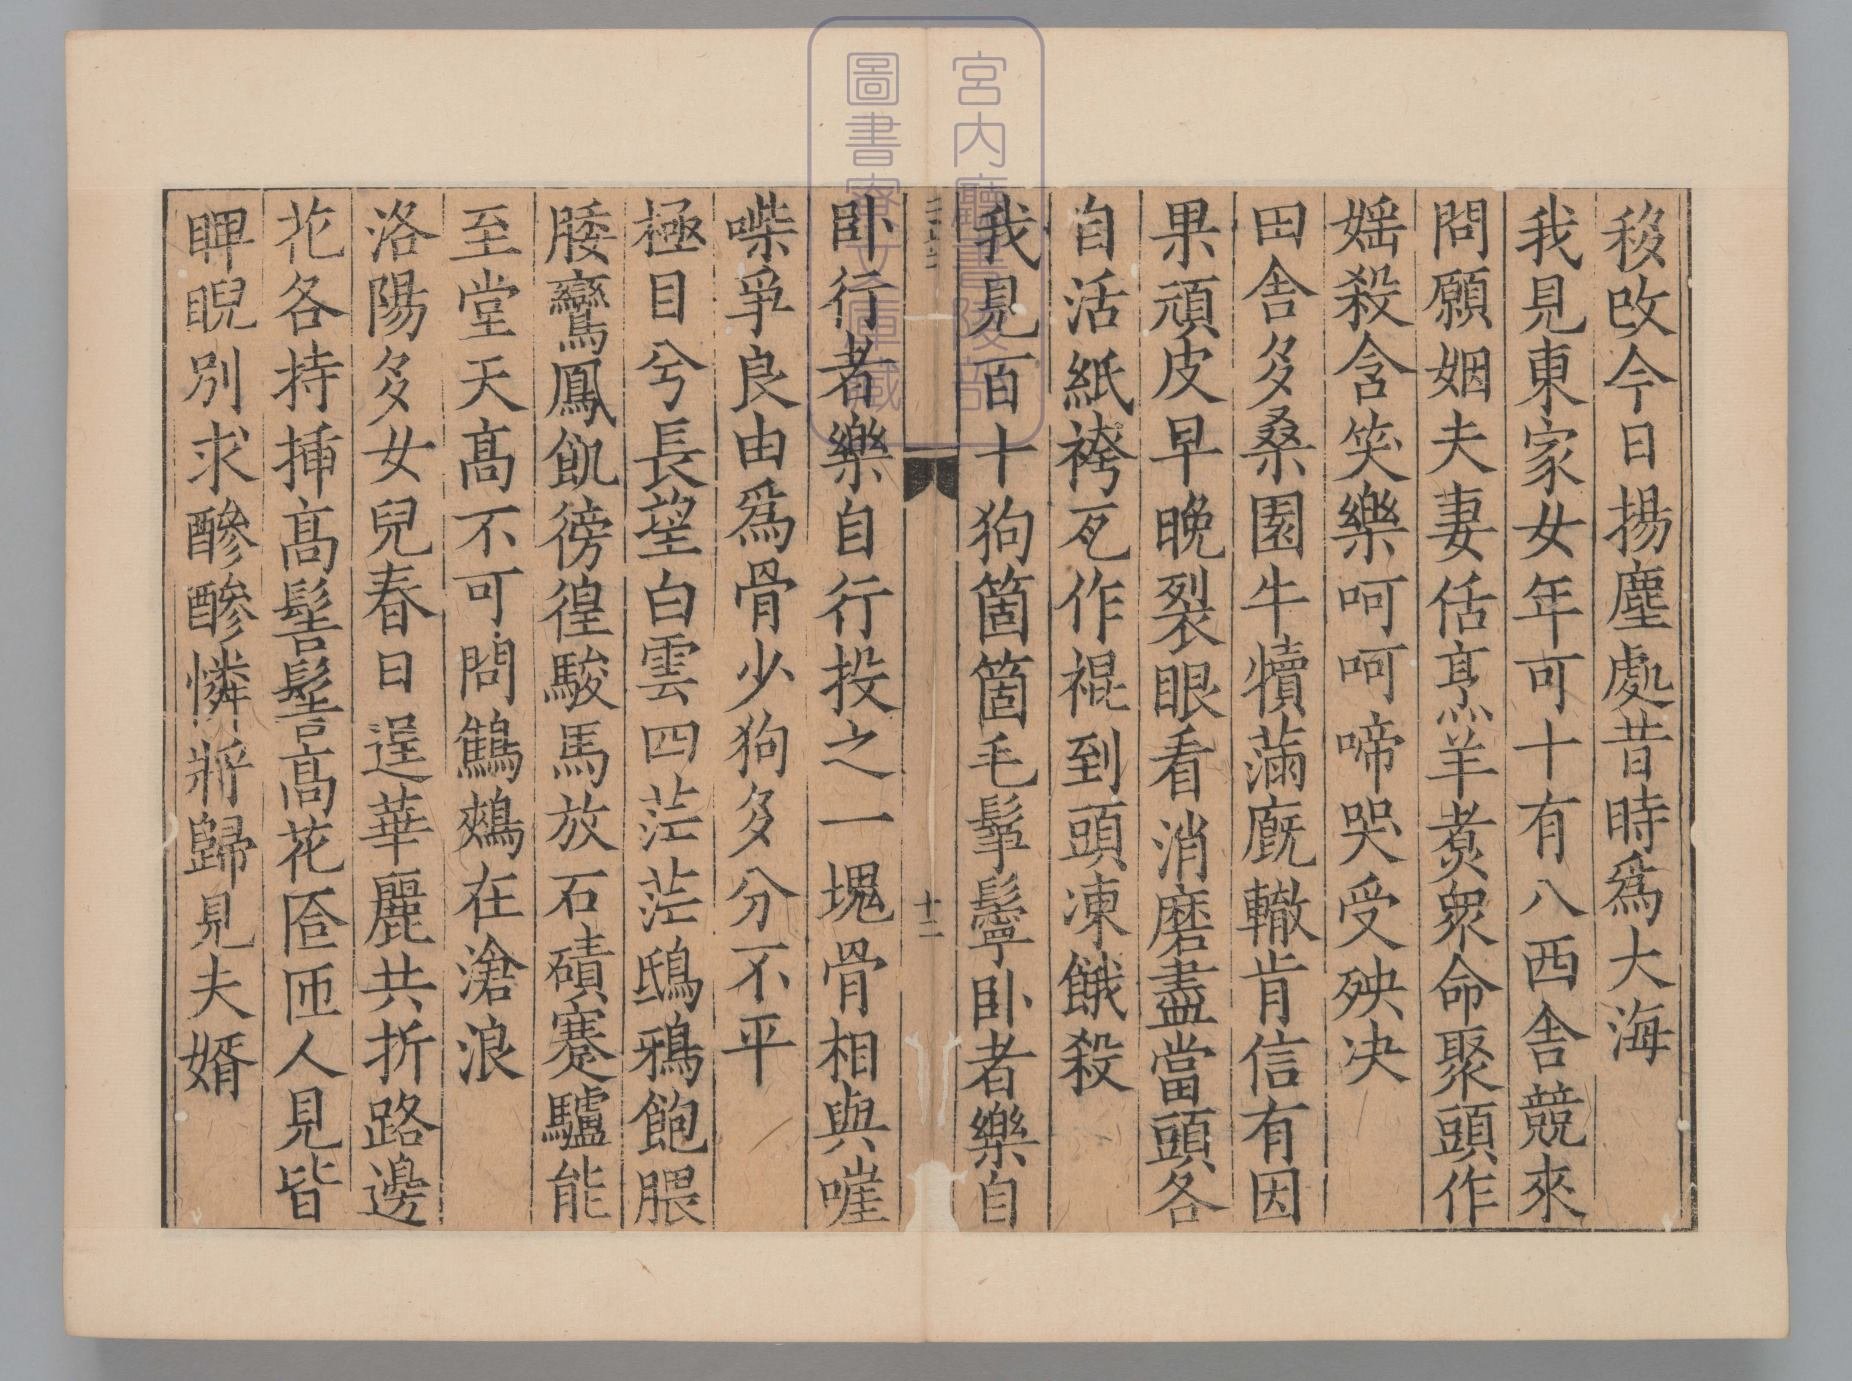 移改今日揚塵處昔時爲大海
我見東家女年可十有八西舍競來
問願姻夫妻佸烹羊煑衆命聚頭作
婬殺含笑樂呵呵啼哭受殃决
田舍多桒園牛犢滿廐轍肯信有因
果頑皮早晚裂眼看消磨盡當頭各
自活紙袴瓦作裩到頭凍餓殺
我見百十狗箇箇毛鬇鬡卧者樂自
卧行者樂自行投之一塊骨相與啀
喍爭良由爲骨少狗多分不平
極目兮長望白雲四茫茫鴟鴉飽腲
腇鸞鳳飢徬徨駿馬放石磧蹇驢能
至堂天髙不可問鷦鵊在滄浪
洛陽多女兒春日逞華麗共折路邊
花各持揷髙髻髻髙花匼匝人見皆
睥睨別求醦醦憐將歸見夫婿
十二
宮内廳書陵部
圖書寮文庫藏